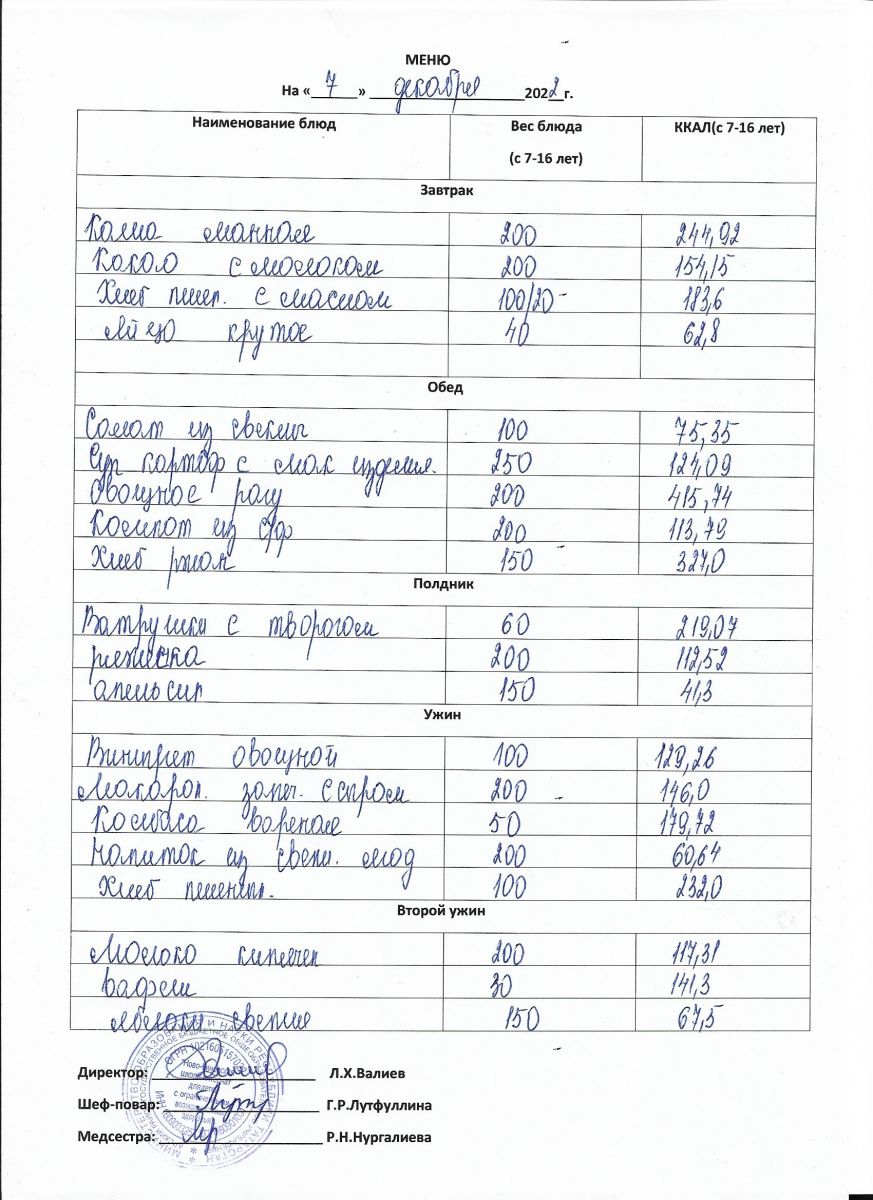 МЕНЮ
На «7» декабря 2022 г.
Наименование блюд Вес блюда (с 7-16 лет) ККАЛ(с 7-16 лет)
Завтрак
Каша манная 200 244,92
Какао с молоком 200 154,15
Хлеб пшен. с маслом 100/20 183,6
Яйцо крутое 40 62,8
Обед
Салат из свеклы 100 75,35
Суп картоф с мак изделия. 250 124,09
Овощное рагу 200 415,74
Компот из с/ф 200 113,79
Хлеб ржан 150 327,0
Полдник
Ватрушки с творогом 60 219,07
ряженка 200 112,52
апельсин 150 41,3
Ужин
Винигрет овощной 100 129,26
Макарон. запеч. с сыром 200 146,0
Колбаса вареная 50 179,72
Напиток из свеж. ягод 200 60,64
Хлеб пшеничн. 100 232,0
Второй ужин
Молоко кипячен 200 117,31
вафли 30 141,3
яблоки свежие 150 67,5
Директор: Л.Х.Валиев
Шеф-повар: Г.Р.Лутфуллина
Медсестра: Р.Н.Нургалиева